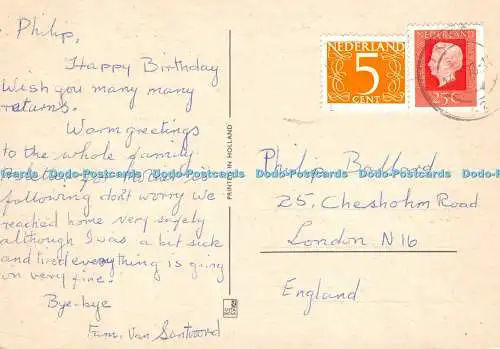 Philip,
Happy Birthday
Wish you many many
returns.
Warm greetings
to the whole family
following don't worry we
reached home very safely
although I was a bit sick
and tired everything is going
on very fine.
Bye-bye
Fam. Van Santvoord
PRINTED IN HOLLAND
NEDERLAND
5
CENT
NEDERLAND
25c
Philip Ballard
25, Chesholm Road
London N16
England
Dodo-Postcards Dodo-Postcards Dodo-Postcards Dodo-Postcards Dodo-Postcards